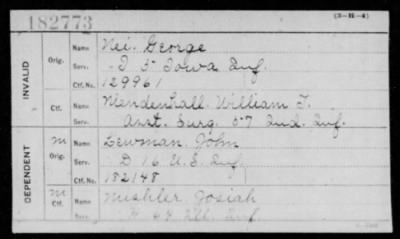 182773
(3-H-4)
INVALID
Orig.
Name Nei. George
Serv. D 5 Iowa Inf.
Ctf. No. 129961
Ctf.
Name Mendenhall. William T.
Serv. Asst. Surg. 57 Ind. Inf.
DEPENDENT
M
Orig.
Name Lewman. John
Serv. D 16 U.S. Inf.
Ctf. No. 182148
M
Ctf.
Name Mishler. Josiah
Serv. Ill. Inf.